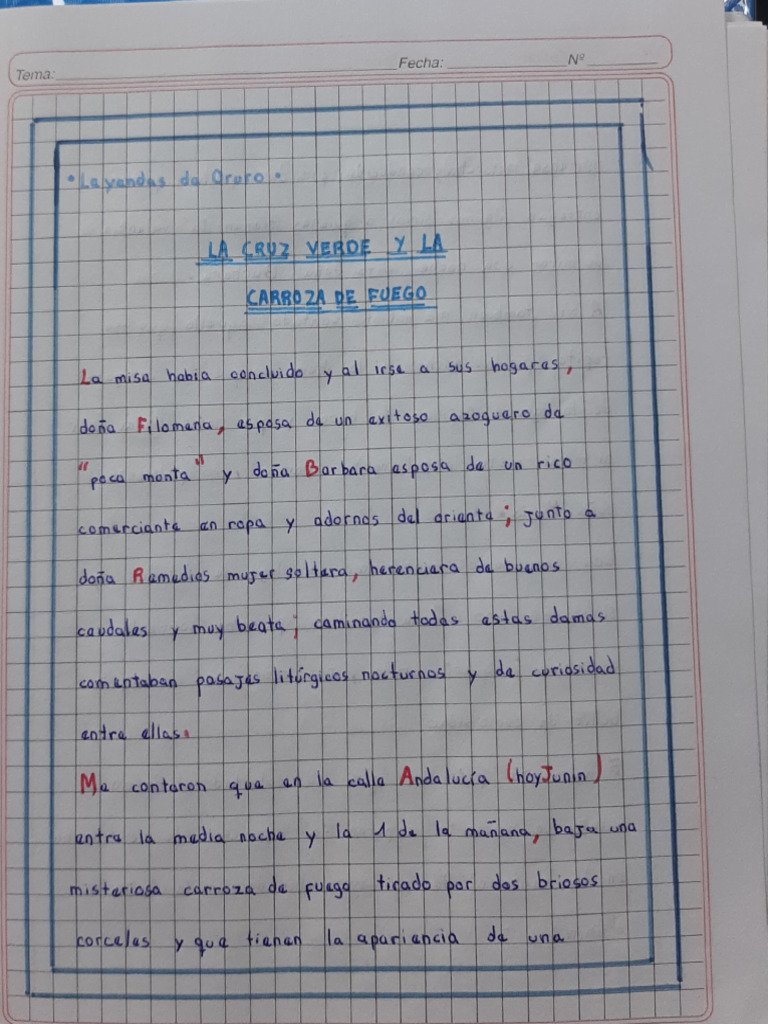 Tema:
Fecha:
Nº
• Leyendas de Oruro •
LA CRUZ VERDE Y LA
CARROZA DE FUEGO
La misa habia concluido y al irse a sus hogares,
doña Filomena, esposa de un exitoso azoguero de
"poca monta" y doña Barbara esposa de un rico
comerciante en ropa y adornos del oriente; junto a
doña Remedios mujer soltera, herenciera de buenos
caudales y muy beata; caminando todas estas damas
comentaban pasajes litúrgicos nocturnos y de curiosidad
entre ellas.
Me contaron que en la calle Andalucía (hoy Junin)
entre la media noche y la 1 de la mañana, baja una
misteriosa carroza de fuego tirado por dos briosos
corceles y que tienen la apariencia de una